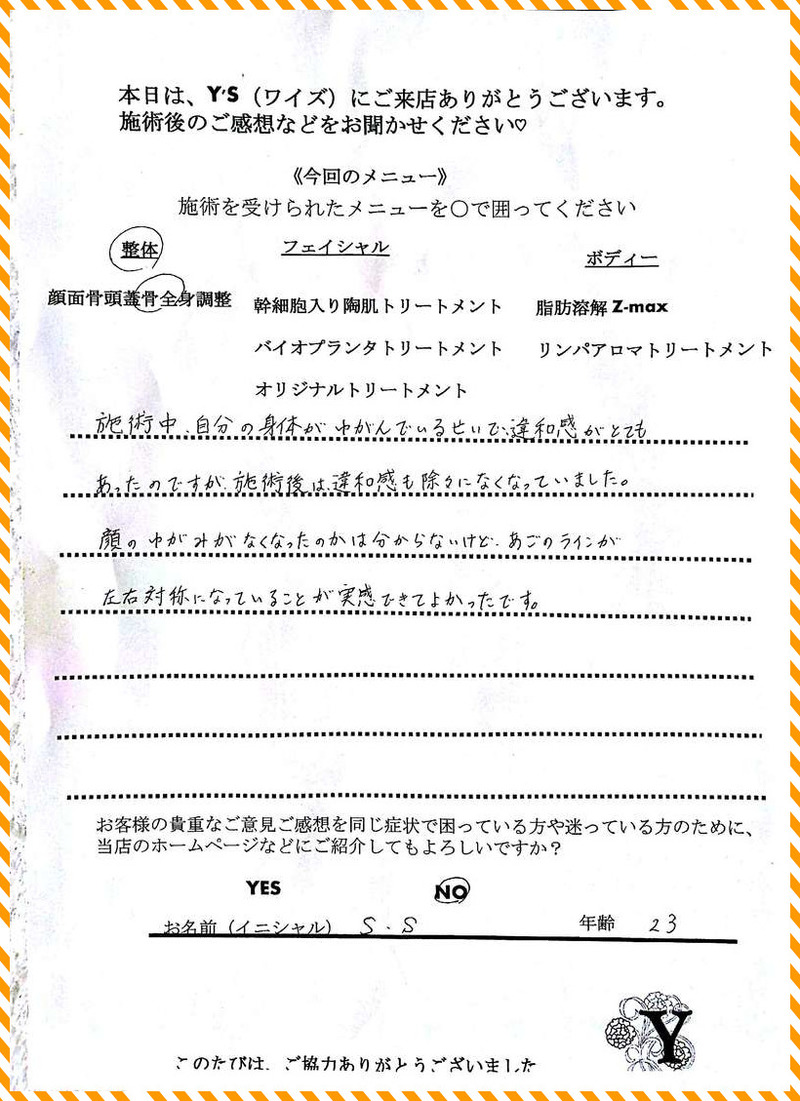 本日は、Y'S（ワイズ）にご来店ありがとうございます。
施術後のご感想などをお聞かせください♡
《今回のメニュー》
施術を受けられたメニューを〇で囲ってください
整体 フェイシャル ボディー
顔面骨頭蓋骨全身調整 幹細胞入り陶肌トリートメント 脂肪溶解 Z-max
バイオプランタトリートメント リンパアロマトリートメント
オリジナルトリートメント
施術中、自分の身体がゆがんでいるせいで、違和感がとても
あったのですが、施術後は、違和感も除々になくなっていました。
顔のゆがみがなくなったのかは分からないけど、あごのラインが
左右対称になっていることが実感できてよかったです。
お客様の貴重なご意見ご感想を同じ症状で困っている方や迷っている方のために、
当店のホームページなどにご紹介してもよろしいですか？
YES NO
お名前（イニシャル） S.S 年齢 23
Y
このたびは、ご協力ありがとうございました